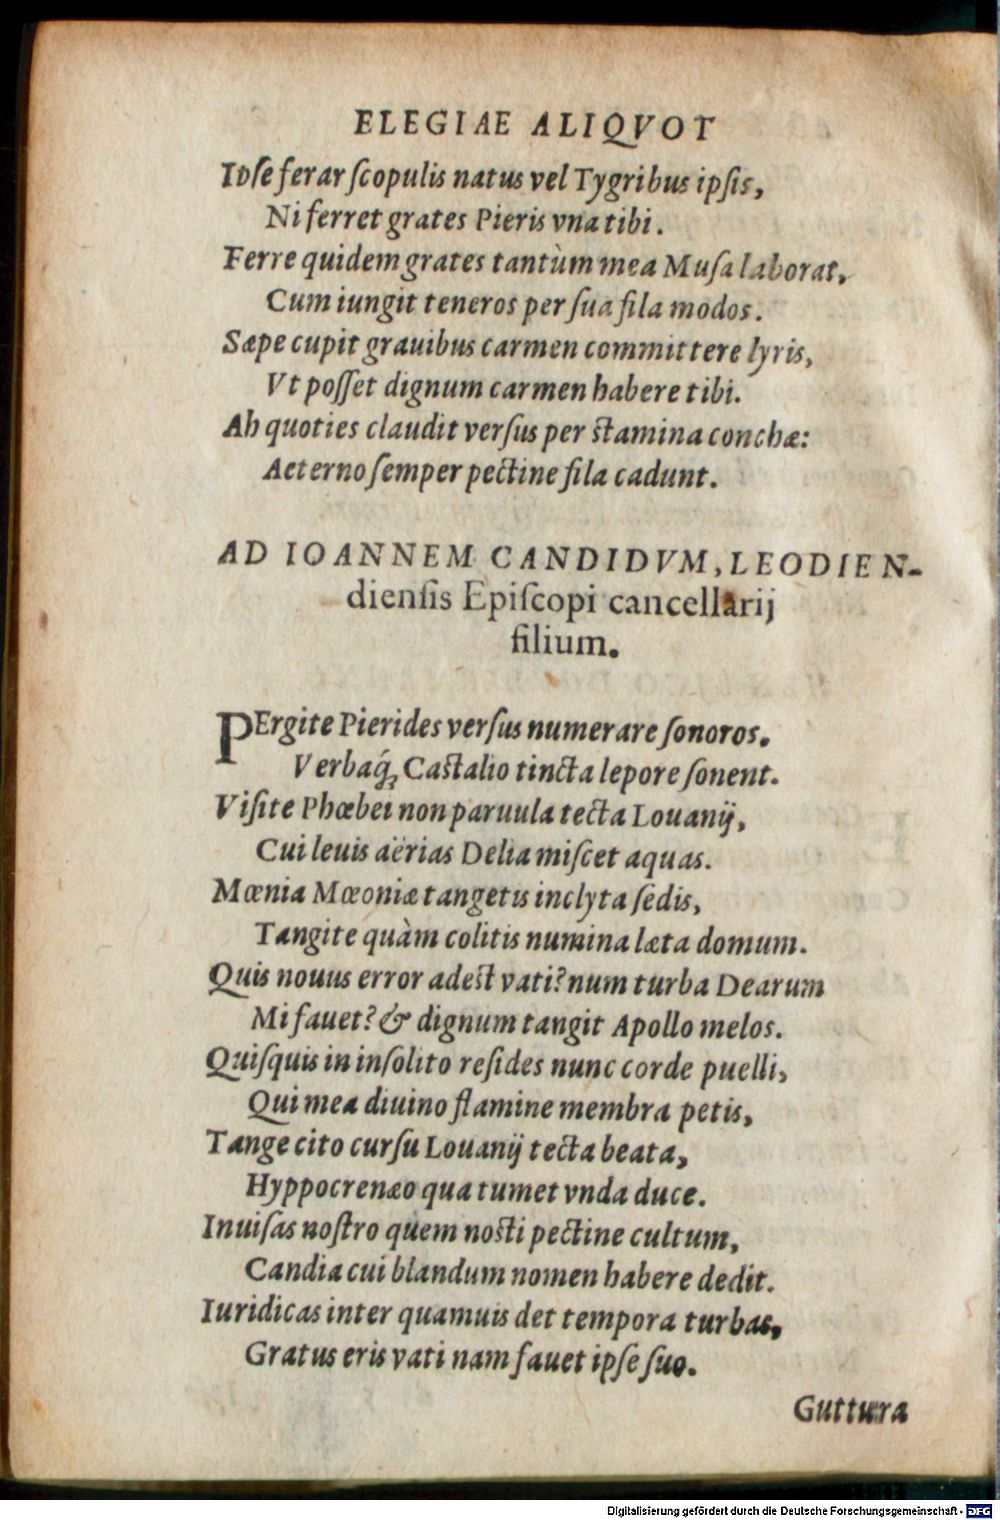 ELEGIAE ALIQVOT
Ipſe ferar ſcopulis natus vel Tygribus ipſis,
Ni ferret grates Pieris vna tibi.
Ferre quidem grates tantùm mea Muſa laborat,
Cum iungit teneros per ſua fila modos.
Sæpe cupit grauibus carmen committere lyris,
Vt poſſet dignum carmen habere tibi.
Ah quoties claudit verſus per ſtamina conchæ:
Aeterno ſemper pectine fila cadunt.
AD IOANNEM CANDIDVM, LEODIEN-
dienſis Epiſcopi cancellarij
filium.
PErgite Pierides verſus numerare ſonoros.
Verbaq́; Caſtalio tincta lepore ſonent.
Viſite Phœbei non paruula tecta Louanij,
Cui leuis aërias Delia miſcet aquas.
Mœnia Mœoniæ tangetis inclyta ſedis,
Tangite quàm colitis numina læta domum.
Quis nouus error adeſt vati? num turba Dearum
Mi fauet? & dignum tangit Apollo melos.
Quiſquis in inſolito reſides nunc corde puelli,
Qui mea diuino flamine membra petis,
Tange cito curſu Louanij tecta beata,
Hyppocrenæo qua tumet vnda duce.
Inuiſas noſtro quem noſti pectine cultum,
Candia cui blandum nomen habere dedit.
Iuridicas inter quamuis det tempora turbas,
Gratus eris vati nam fauet ipſe ſuo.
Guttura
Digitalisierung gefördert durch die Deutsche Forschungsgemeinschaft - DFG